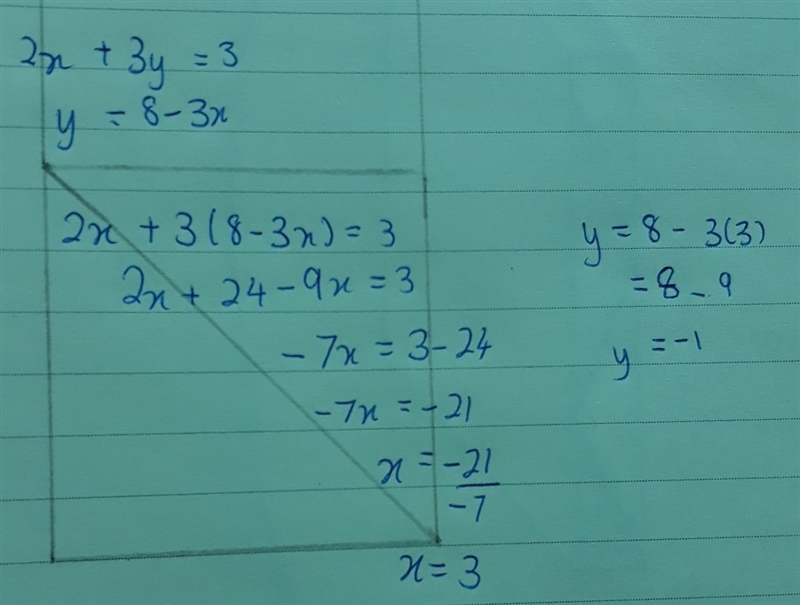 2x + 3y = 3
y = 8 - 3x
2x + 3(8 - 3x) = 3
2x + 24 - 9x = 3
-7x = 3 - 24
-7x = -21
x = -21/-7
x = 3
y = 8 - 3(3)
= 8 - 9
y = -1